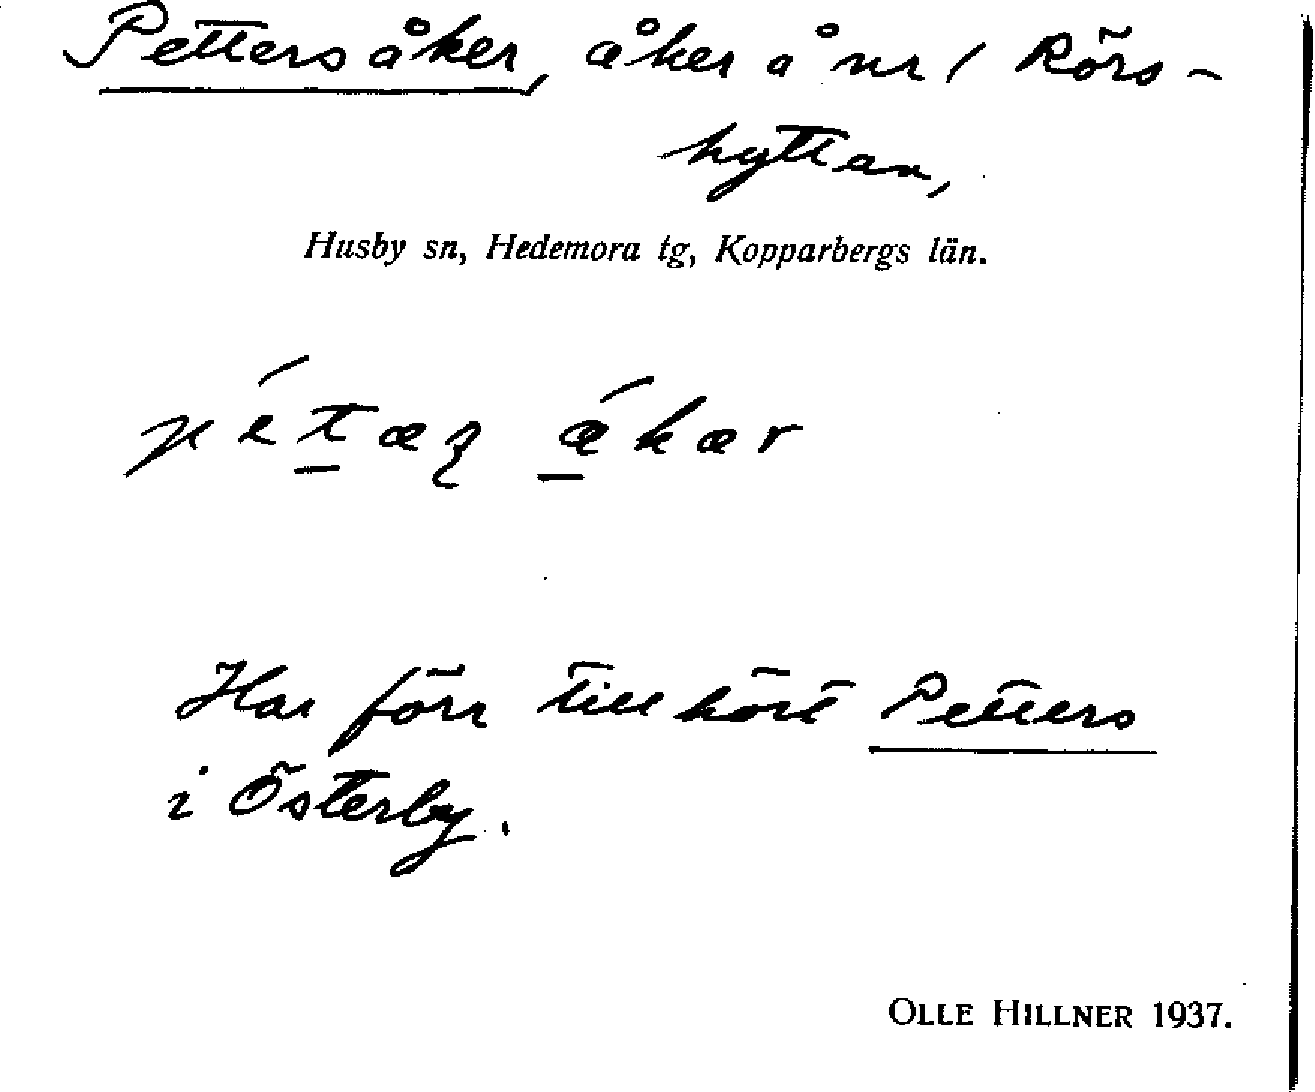 Petters åker, åker å nr 1 Rörs-
hyttan,
Husby sn, Hedemora tg, Kopparbergs län.
Har förr tillhört Petters
i Österby.
OLLE HILLNER 1937.